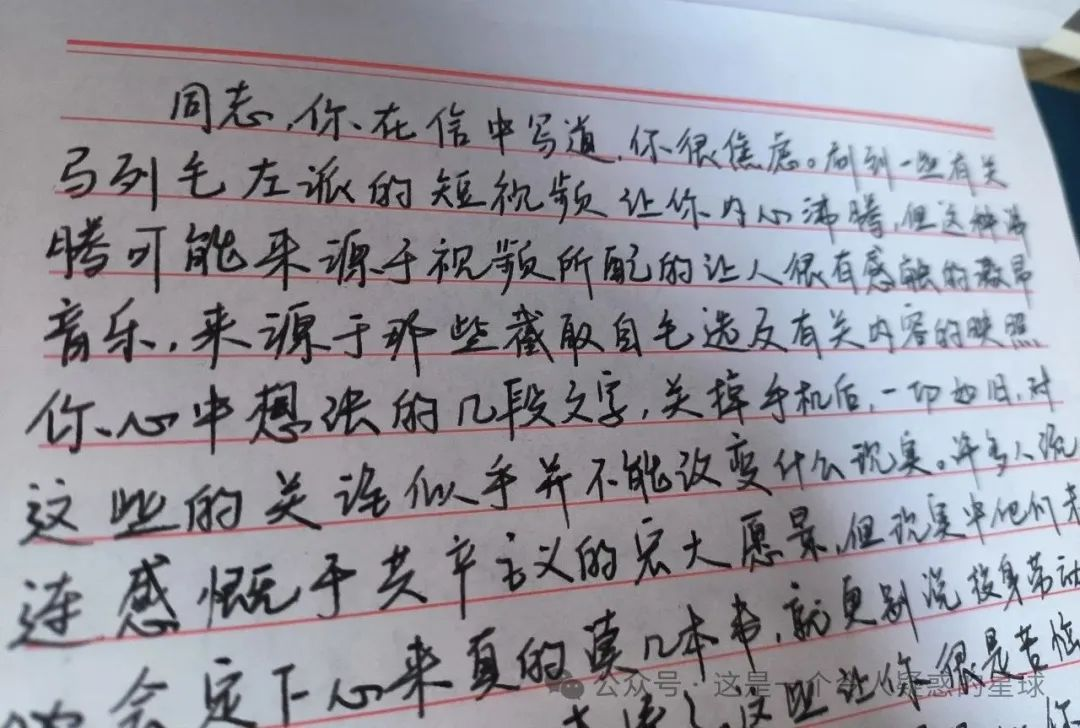 同志，你在信中写道，你很焦虑。刷到一些有关
马列毛左派的短视频让你内心沸腾，但这种沸
腾可能来源于视频所配的让人很有感触的激昂
音乐，来源于那些截取自毛选及有关内容的映照
你心中想法的几段文字，关掉手机后，一切如旧，对
这些的关注似乎并不能改变什么现实。许多人流
连感慨于共产主义的宏大愿景，但现实中他们未
会定下心来真的读几本书，就更别说投身劳动
这些让你很是苦恼
你
公众号·这是一个令人疑惑的星球